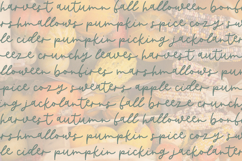 harvest autumn fall halloween
bonfires marshmallows pumpkin
spice cozy sweaters app
le cider pumpkin picking jackola
eeze crunchy leaves harvest autumn
halloween bonfires marshmallows pu
spice cozy sweaters apple cider pum
g jackolanterns fall breeze crunch
harvest autumn fall halloween bonf
rshmallows pumpkin spice cozy s
pple cider pumpkin picking jacko